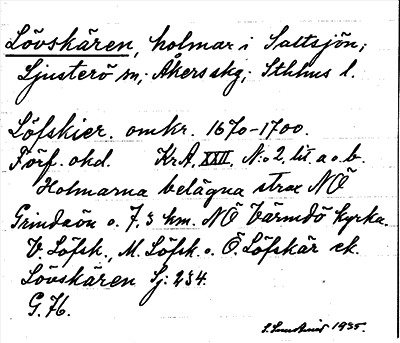 Lövskären, holmar i Saltsjön;
Ljusterö sn; Åkers skg; Sthlms l.
Löfskier. omkr. 1670-1700.
Förf. okd. KrA, XXII, N:o 2, lit. a o. b.
Holmarna belägna strax NÖ
Grindaön o. 7.3 km. NÖ Värmdö kyrka.
V. Löfsk., M. Löfsk. o. Ö. Löfskär ek.
Lövskären Sj: 234.
G. 76.
1935.